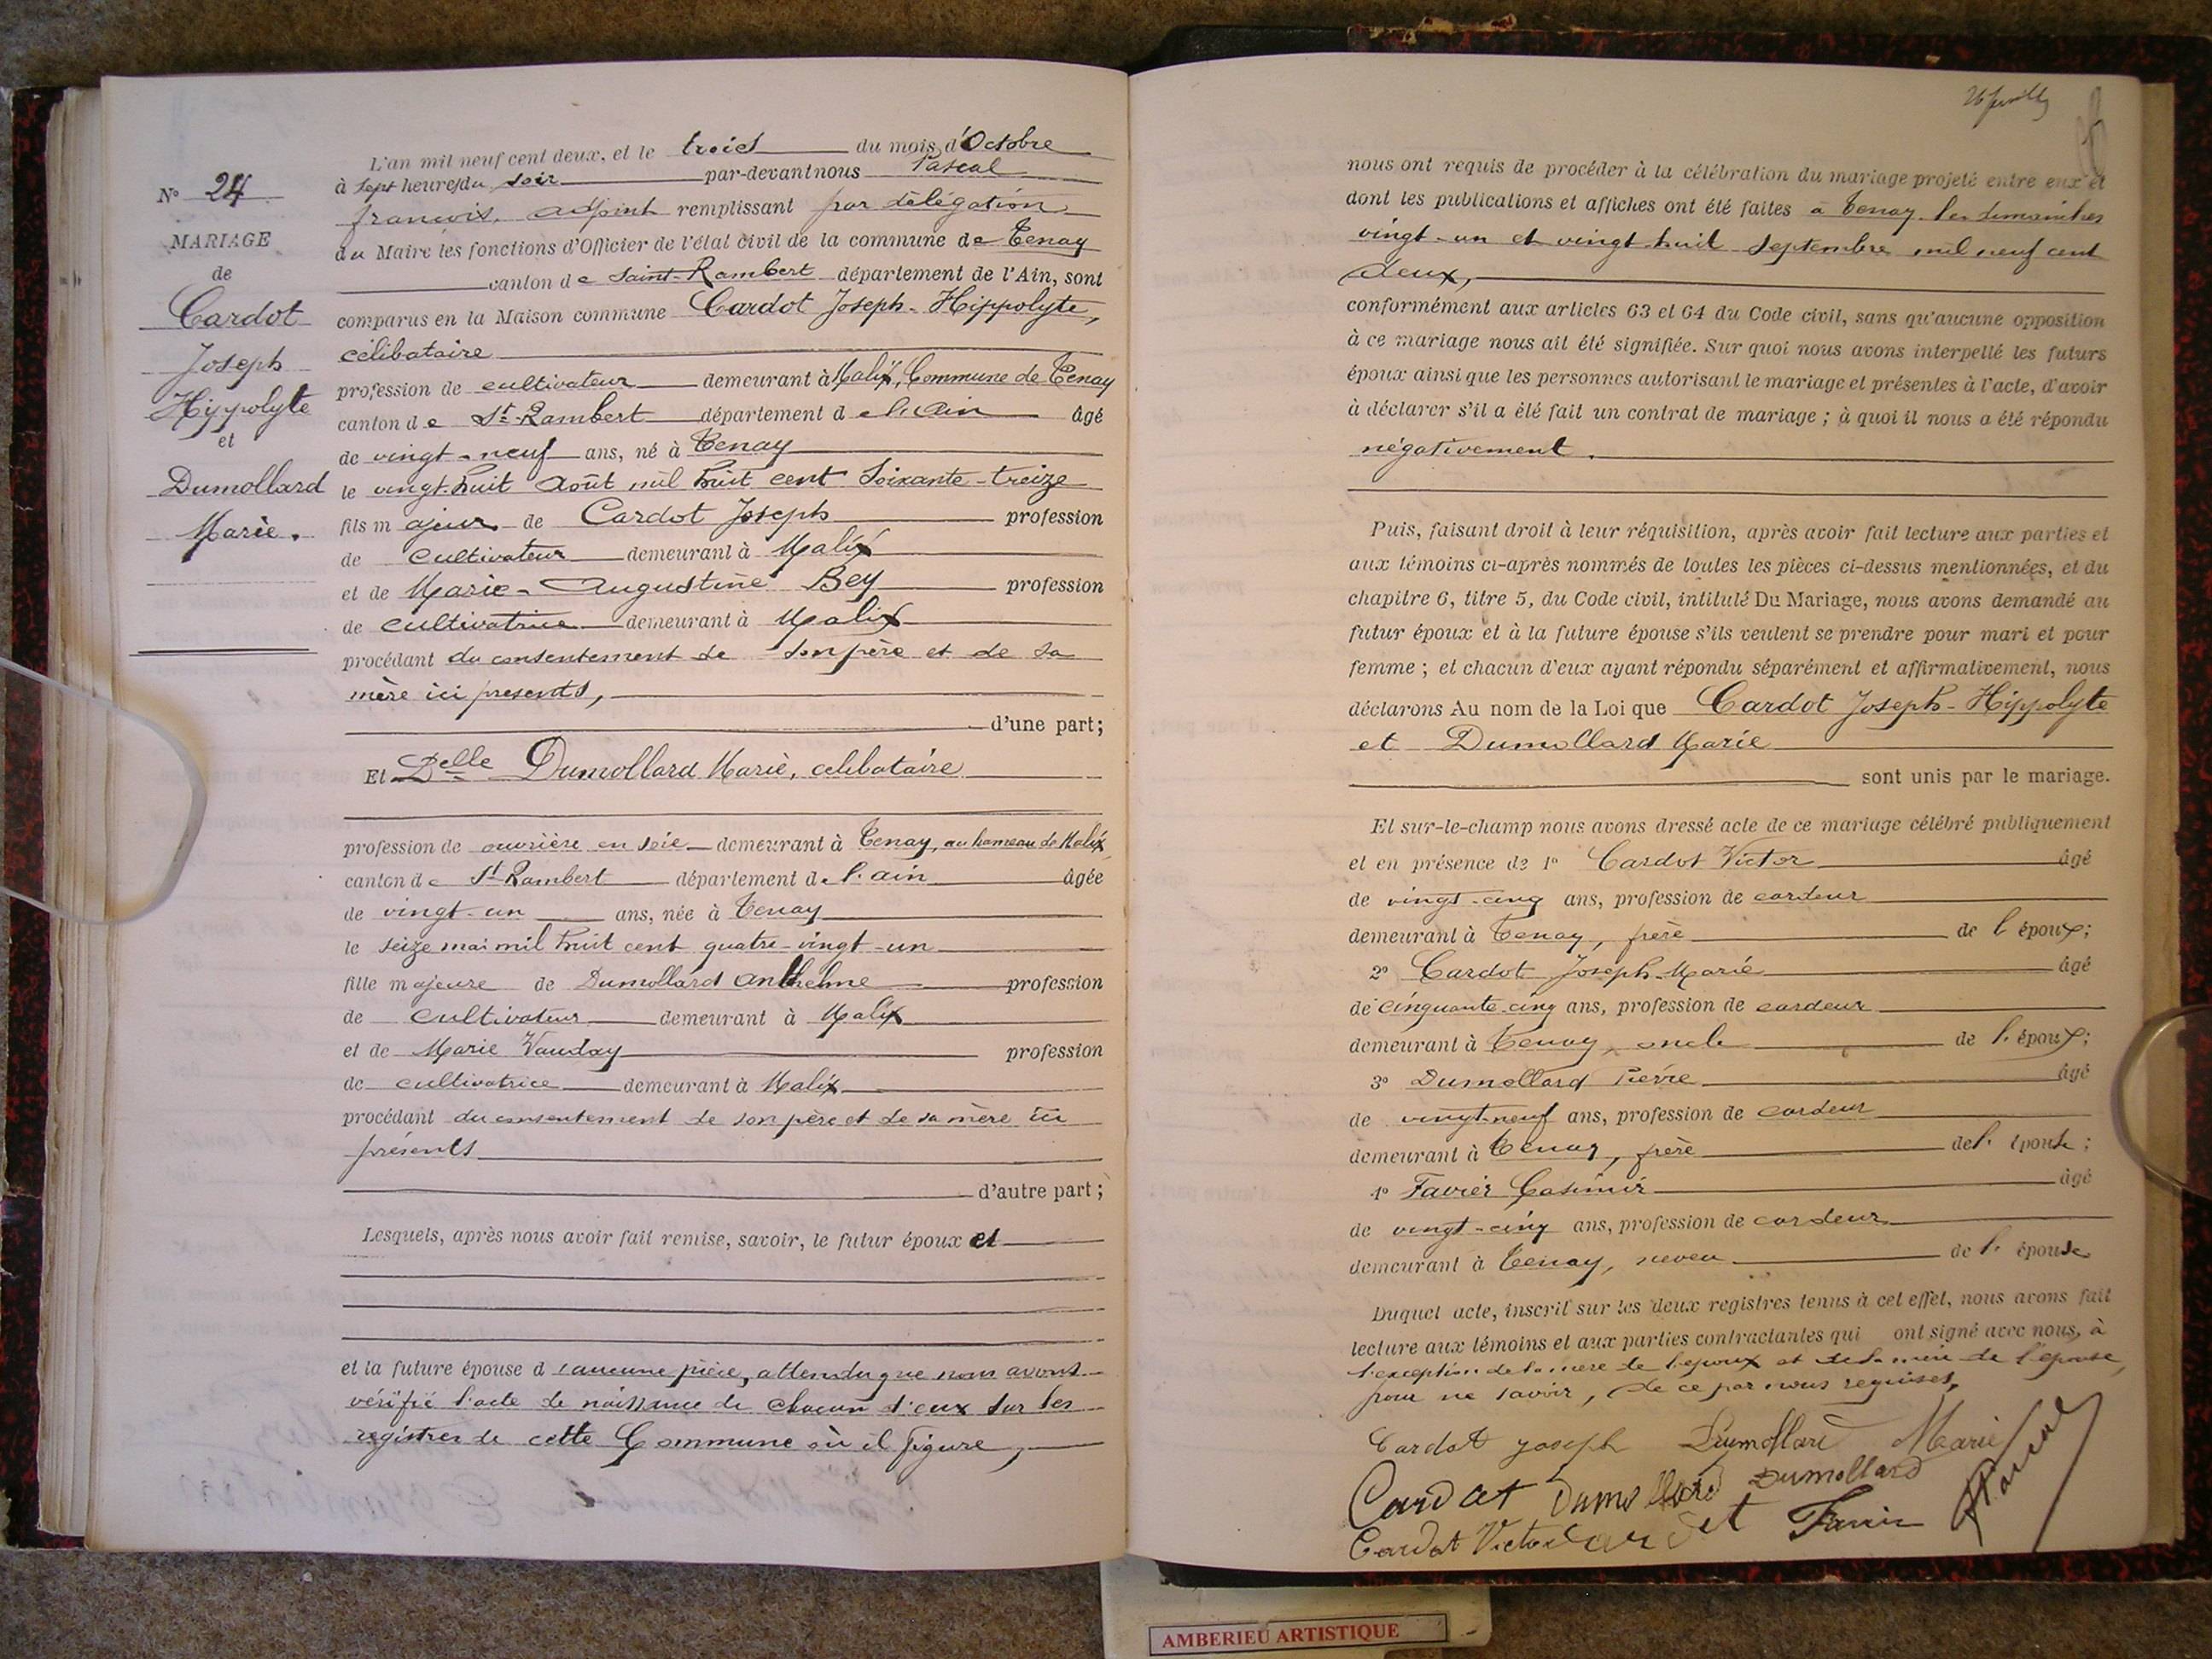 N° 24
MARIAGE
de
Cardot
Joseph
Hippolyte
et
Dumollard
Marie.
L'an mil neuf cent deux, et le trois du mois d'Octobre
à sept heures du soir par-devant nous Pascal
françois, adjoint remplissant par délégation
du Maire les fonctions d'Officier de l'état civil de la commune de Tenay
canton de Saint-Rambert département de l'Ain, sont
comparus en la Maison commune Cardot Joseph-Hippolyte,
célibataire
profession de cultivateur demeurant à Malix, Commune de Tenay
canton de St-Rambert département de l'Ain âgé
de vingt-neuf ans, né à Tenay
le vingt-huit Août mil huit cent soixante-treize
fils majeur de Cardot Joseph profession
de cultivateur demeurant à Malix
et de Marie-Augustine Bey profession
de cultivatrice demeurant à Malix
procédant du consentement de son père et de sa
mère ici presents,
d'une part;
Et Delle Dumollard Marie, celibataire
profession de ouvrière en soie demeurant à Tenay, au hameau de Malix,
canton de St Rambert département de l'ain âgée
de vingt-un ans, née à Tenay
le seize mai mil huit cent quatre-vingt-un
fille majeure de Dumollard Anthelme profession
de cultivateur demeurant à Malix
et de Marie Vauday profession
de cultivatrice demeurant à Malix
procédant du consentement de son père et de sa mère ici
présents
d'autre part;
Lesquels, après nous avoir fait remise, savoir, le futur époux et
et la future épouse d'aucune pièce, attendu que nous avons
vérifié l'acte de naissance de chacun d'eux sur les
registres de cette Commune où il figure,
nous ont requis de procéder à la célébration du mariage projeté entre eux et
dont les publications et affiches ont été faites à Tenay les dimanches
vingt-un et vingt-huit septembre mil neuf cent
deux,
conformément aux articles 63 et 64 du Code civil, sans qu'aucune opposition
à ce mariage nous ait été signifiée. Sur quoi nous avons interpellé les futurs
époux ainsi que les personnes autorisant le mariage et présentes à l'acte, d'avoir
à déclarer s'il a été fait un contrat de mariage ; à quoi il nous a été répondu
négativement.
Puis, faisant droit à leur réquisition, après avoir fait lecture aux parties et
aux témoins ci-après nommés de toutes les pièces ci-dessus mentionnées, et du
chapitre 6, titre 5, du Code civil, intitulé Du Mariage, nous avons demandé au
futur époux et à la future épouse s'ils veulent se prendre pour mari et pour
femme ; et chacun d'eux ayant répondu séparément et affirmativement, nous
déclarons Au nom de la Loi que Cardot Joseph-Hippolyte
et Dumollard Marie
sont unis par le mariage.
Et sur-le-champ nous avons dressé acte de ce mariage célébré publiquement
et en présence de 1° Cardot Victor âgé
de vingt-cinq ans, profession de cardeur
demeurant à Tenay, frère de l'époux;
2° Cardot Joseph-Marie âgé
de cinquante-cinq ans, profession de cardeur
demeurant à Tenay, oncle de l'époux;
3° Dumollard Pierre âgé
de vingt-neuf ans, profession de cardeur
demeurant à Tenay, frère de l'épouse;
4° Favier Casimir âgé
de vingt-cinq ans, profession de cardeur
demeurant à Tenay, neveu de l'épouse
Duquel acte, inscrit sur les deux registres tenus à cet effet, nous avons fait
lecture aux témoins et aux parties contractantes qui ont signé avec nous, à
l'exception de la mère de l'époux et de la mère de l'épouse,
pour ne savoir, de ce par nous requises,
Cardot Joseph Dumollard Marie
Cardot Dumollard Dumollard
Cardot Victor Cardot Favier Pascal
AMBERIEU ARTISTIQUE